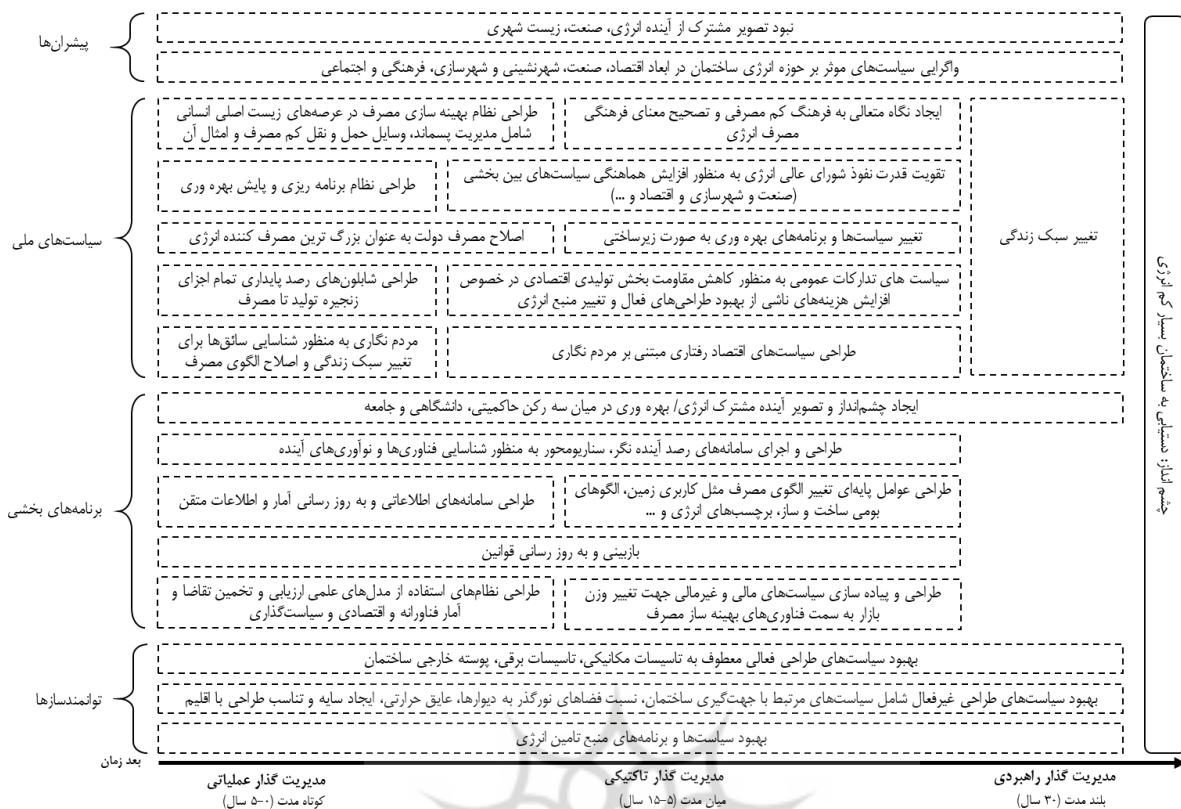 پیشران‌ها
نبود تصویر مشترک از آینده انرژی، صنعت، زیست شهری
واگرایی سیاست‌های موثر بر حوزه انرژی ساختمان در ابعاد اقتصاد، صنعت، شهرنشینی و شهرسازی، فرهنگی و اجتماعی
سیاست‌های ملی
تغییر سبک زندگی
ایجاد نگاه متعالی به فرهنگ کم مصرفی و تصحیح معنای فرهنگی
مصرف انرژی
طراحی نظام بهینه سازی مصرف در عرصه‌های زیست اصلی انسانی
شامل مدیریت پسماند، وسایل حمل و نقل کم مصرف و امثال آن
تقویت قدرت نفوذ شورای عالی انرژی به منظور افزایش هماهنگی سیاست‌های بین بخشی
(صنعت و شهرسازی و اقتصاد و ...)
طراحی نظام برنامه ریزی و پایش بهره وری
تغییر سیاست‌ها و برنامه‌های بهره وری به صورت زیرساختی
اصلاح مصرف دولت به عنوان بزرگ ترین مصرف کننده انرژی
سیاست های تدارکات عمومی به منظور کاهش مقاومت بخش تولیدی اقتصادی در خصوص
افزایش هزینه‌های ناشی از بهبود طراحی‌های فعال و تغییر منبع انرژی
طراحی شابلون‌های رصد پایداری تمام اجزای
زنجیره تولید تا مصرف
طراحی سیاست‌های اقتصاد رفتاری مبتنی بر مردم نگاری
مردم نگاری به منظور شناسایی سائق‌ها برای
تغییر سبک زندگی و اصلاح الگوی مصرف
برنامه‌های بخشی
ایجاد چشم‌انداز و تصویر آینده مشترک انرژی/ بهره وری در میان سه رکن حاکمیتی، دانشگاهی و جامعه
طراحی و اجرای سامانه‌های رصد آینده نگر، سناریومحور به منظور شناسایی فناوری‌ها و نوآوری‌های آینده
طراحی عوامل پایه‌ای تغییر الگوی مصرف مثل کاربری زمین، الگوهای
بومی ساخت و ساز، برچسب‌های انرژی و ...
طراحی سامانه‌های اطلاعاتی و به روز رسانی آمار و اطلاعات متقن
بازبینی و به روز رسانی قوانین
طراحی و پیاده سازی سیاست‌های مالی و غیرمالی جهت تغییر وزن
بازار به سمت فناوری‌های بهینه ساز مصرف
طراحی نظام‌های استفاده از مدل‌های علمی ارزیابی و تخمین تقاضا و
آمار فناورانه و اقتصادی و سیاست‌گذاری
توانمندسازها
بهبود سیاست‌های طراحی فعالی معطوف به تاسیسات مکانیکی، تاسیسات برقی، پوسته خارجی ساختمان
بهبود سیاست‌های طراحی غیرفعال شامل سیاست‌های مرتبط با جهت‌گیری ساختمان، نسبت فضاهای نورگذر به دیوارها، عایق حرارتی، ایجاد سایه و تناسب طراحی با اقلیم
بهبود سیاست‌ها و برنامه‌های منبع تامین انرژی
چشم انداز: دستیابی به ساختمان بسیار کم انرژی
بعد زمان
مدیریت گذار راهبردی
بلند مدت (۳۰ سال)
مدیریت گذار تاکتیکی
میان مدت (۵-۱۵ سال)
مدیریت گذار عملیاتی
کوتاه مدت (۰-۵ سال)